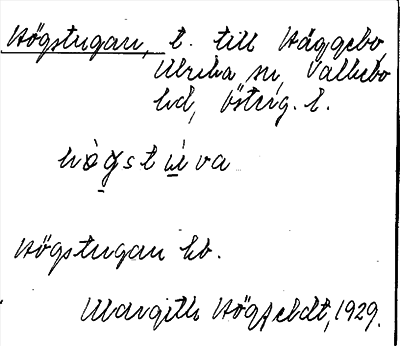 Högstugan, t. till Häggebo,
Ulrika sn, Vallebo
hd, Österg. l.
hö̀gstúva
Högstugan hb.
Margith Högfeldt, 1929.